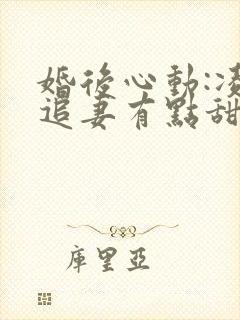 婚後心動:凌
追妻有點甜
庫里亞